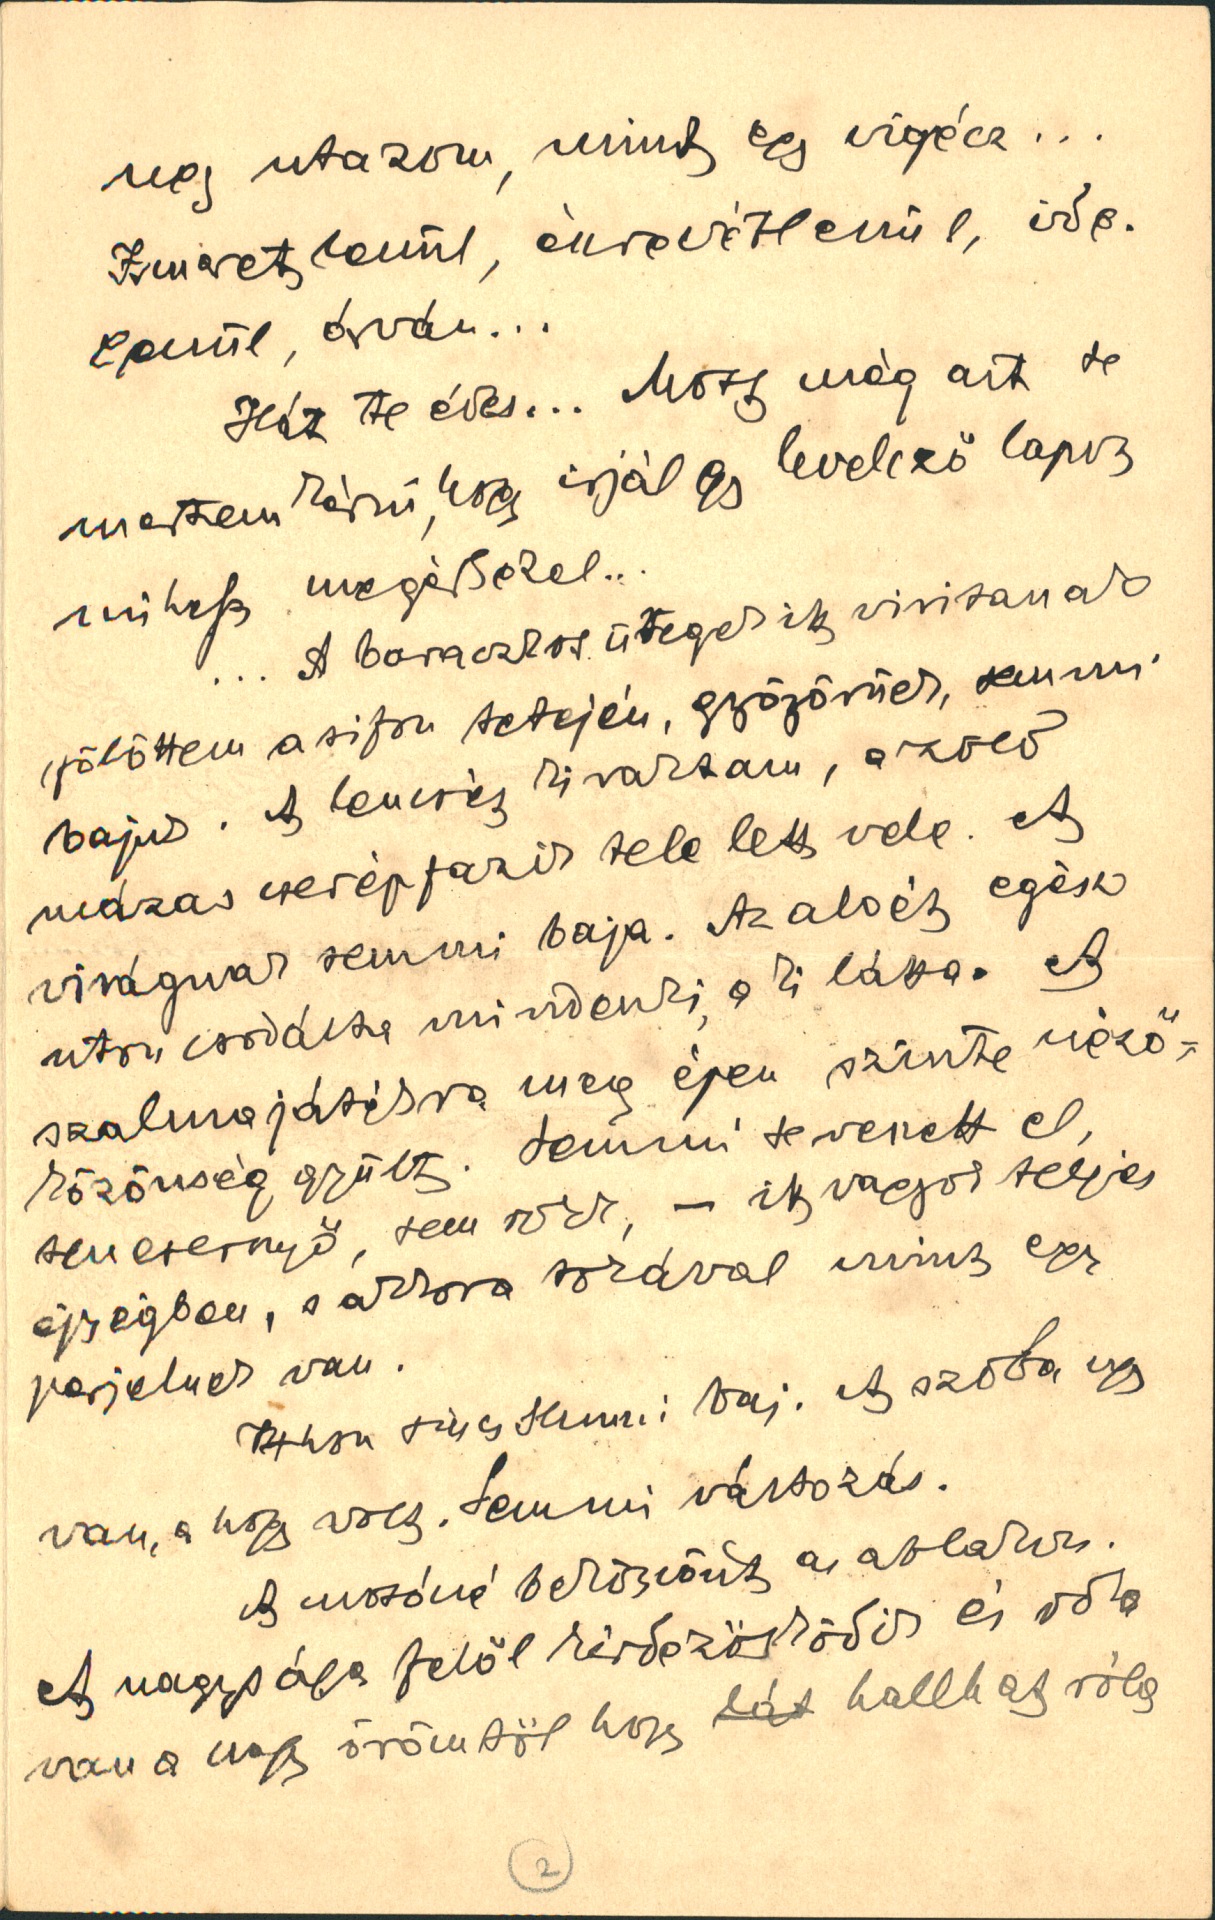 meg utazom, mint egy vigécz...
Ismeretlenül, észrevétlenül, ide.
genül, árván...
Hát te édes... Most még azt se
mertem kérni, hogy irjál egy levelező lapot
mihelyt megérkezel...
... A barackos üvegek itt virítanak
fölöttem a sifon tetején, győzőnek, semmi
bajuk. A lencsét kiraktam, a zöld
mázas cserépfazék tele lett vele. A
virágnak semmi baja. Az aloét egész
uton csodálta mindenki, a ki látta. A
szalmajátékra meg épen szinte néző-
közönség gyült. Semmi se veszett el,
sem esernyő, sem zsák, – itt vagyok teljes
épségben, s akkora szakával mint egy
perjelnek van.
Itthon sincs semmi baj. A szoba ugy
van, a hogy volt. Semmi változás.
A mosóné beköszönt az ablakon.
A nagysága felől kérdezősködik és oda
van a nagy örömtől hogy lát hallhat róla
2